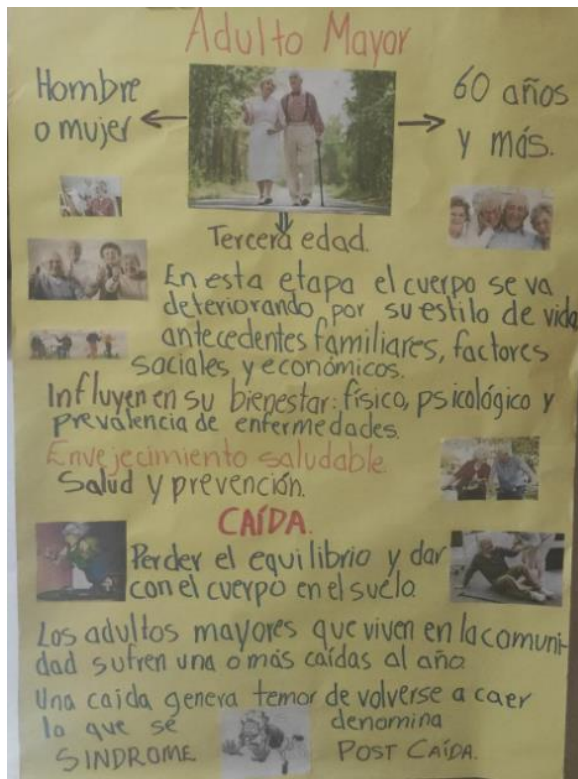 Adulto Mayor
Hombre
o mujer
60 años
y más.
Tercera edad.
En esta etapa el cuerpo se va
deteriorando por su estilo de vida
antecedentes familiares, factores
sociales y económicos.
Influyen en su bienestar: físico, psicológico y
prevalencia de enfermedades.
Envejecimiento saludable.
Salud y prevención.
CAÍDA.
Perder el equilibrio y dar
con el cuerpo en el suelo.
Los adultos mayores que viven en la comuni-
dad sufren una o más caídas al año.
Una caida genera temor de volverse a caer
lo que se denomina
SINDROME POST CAÍDA.